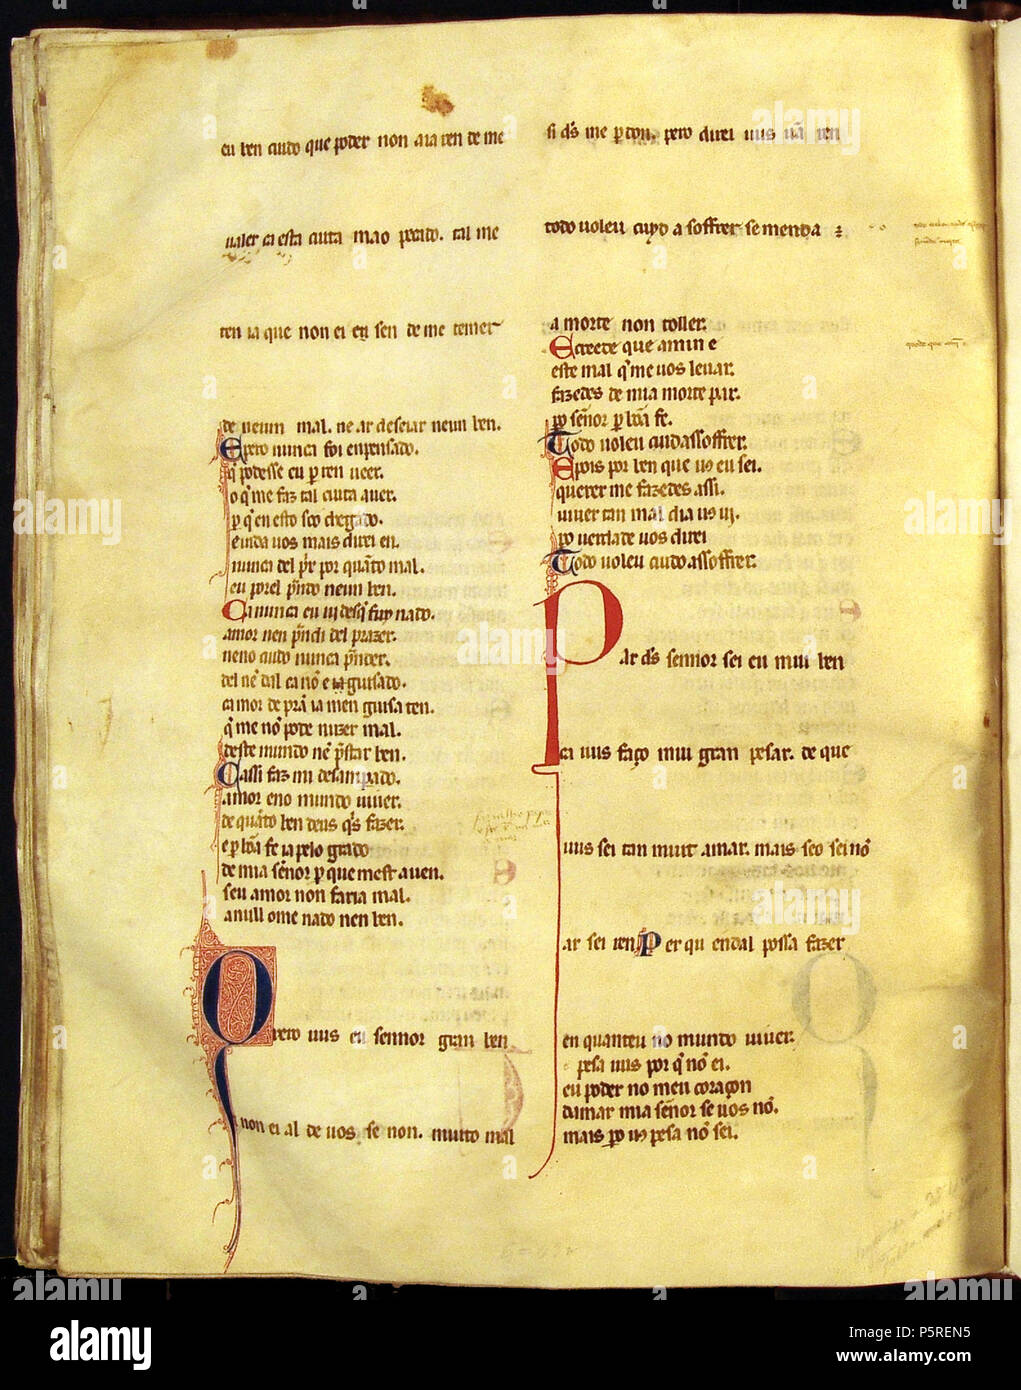 eu ben cuido que poder non aia ren de me
ualer ca esta cuita mao pecado. tal me
ten ia que non ei en sen de me temer
de neun mal. ne ar deseiar neun ben.
Epero nunca foi enpensado.
q̄ podesse eu ꝑ ren ueer.
o q̄ me faz tal cuita auer.
ꝑ q̄ en esto soo chegado.
e inda uos mais direi en.
nunca del p̄r por quāto mal.
eu porel p̄ndo neun ben.
Ca nunca eu ui desq̄ fuy nado.
amor nen p̄ndi del prazer.
neno cuido nunca p̄nder.
del nē dal ca nō e ia guisado.
ca mor de prā ia men guisa ten.
q̄ me nō pode nuzer mal.
deste mundo nē p̄star ben.
Cassi faz mi desampado.
amor eno mundo uiuer.
de quāto ben deus q̄s fazer.
e ꝑ bōa fe ia pelo grado
de mia sēnor ꝑ que mest auen.
seu amor non faria mal.
a null ome nado nen ben.
Quero uus eu sennor gran ben
non ei al de uos. se non. muito mal
si d̄s me ꝑdon. pero direi uus ūa ren
todo uoleu cuyd a soffrer se menda
a morte non toller.
E creede que a min e
este mal q̄ me uos leuar.
fazedes de mia morte par.
ꝑo sēnor ꝑ bōa fe.
Todo uoleu cuidassoffrer.
E pois por ben que us eu sei.
querer me fazedes assi.
uiuer tan mal dia us ui.
ꝑo uerdade uos direi
Todo uoleu cuido assoffrer.
Par d̄s sennor sei eu mui ben
ca uus faço mui gran pesar. de que
uus sei tan muit amar. mais seo sei nō
ar sei ren Per qu en dal possa fazer
en quanteu no mundo uiuer.
pesa uus por q̄ nō ei.
eu poder no meu coraçon
damar mia sēnor se uos nō.
mais ꝑo us pesa nō sei.
alamy
Image ID: P5REN5
www.alamy.com